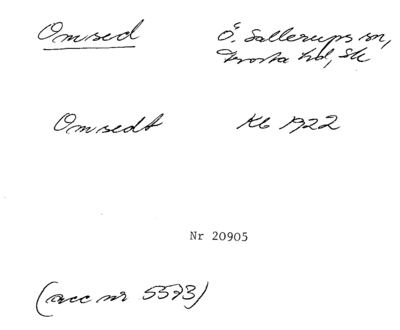 Omsed Ö. Sallerups sn,
Frosta hd, Sk
Omsedt Kb 1922
Nr 20905
(acc nr 5573)